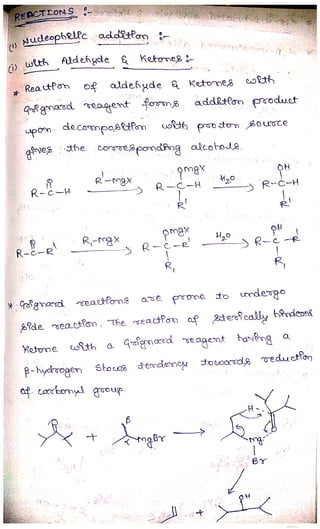 REACTIONS :-
(1) Nucleophilic addition :-
(i) with Aldehyde & Ketones :-
* Reaction of aldehyde & Ketones with
Grignard reagent forms addition product
upon decomposition with proton source
gives the corresponding alcohols.
O OmgX OH
R-C-H R'-mgX R-C-H H2O R-C-H
R' R'
O OmgX OH
R-C-R' R1-mgX R-C-R' H2O R-C-R
R1 R1
* Grignard reactions are prone to undergo
side reaction. The reaction of sterically hindered
Ketone with a Grignard reagent having a
β-hydrogen shows tendency towards reduction
of carbonyl group.
O β H O
+ α mgBr mg
Br
OH
+